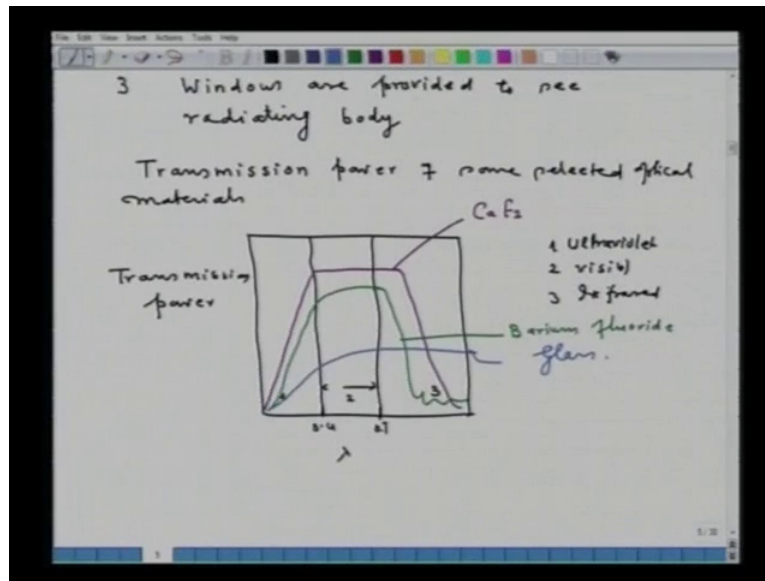 File Edit View Insert Actions Tools Help
3 Windows are provided to see
radiating body
Transmission power of some selected optical
materials
CaF2
Transmission
power
1 Ultraviolet
2 visibl
3 Infrared
Barium fluoride
Glass.
1
2
3
0.4
0.7
λ